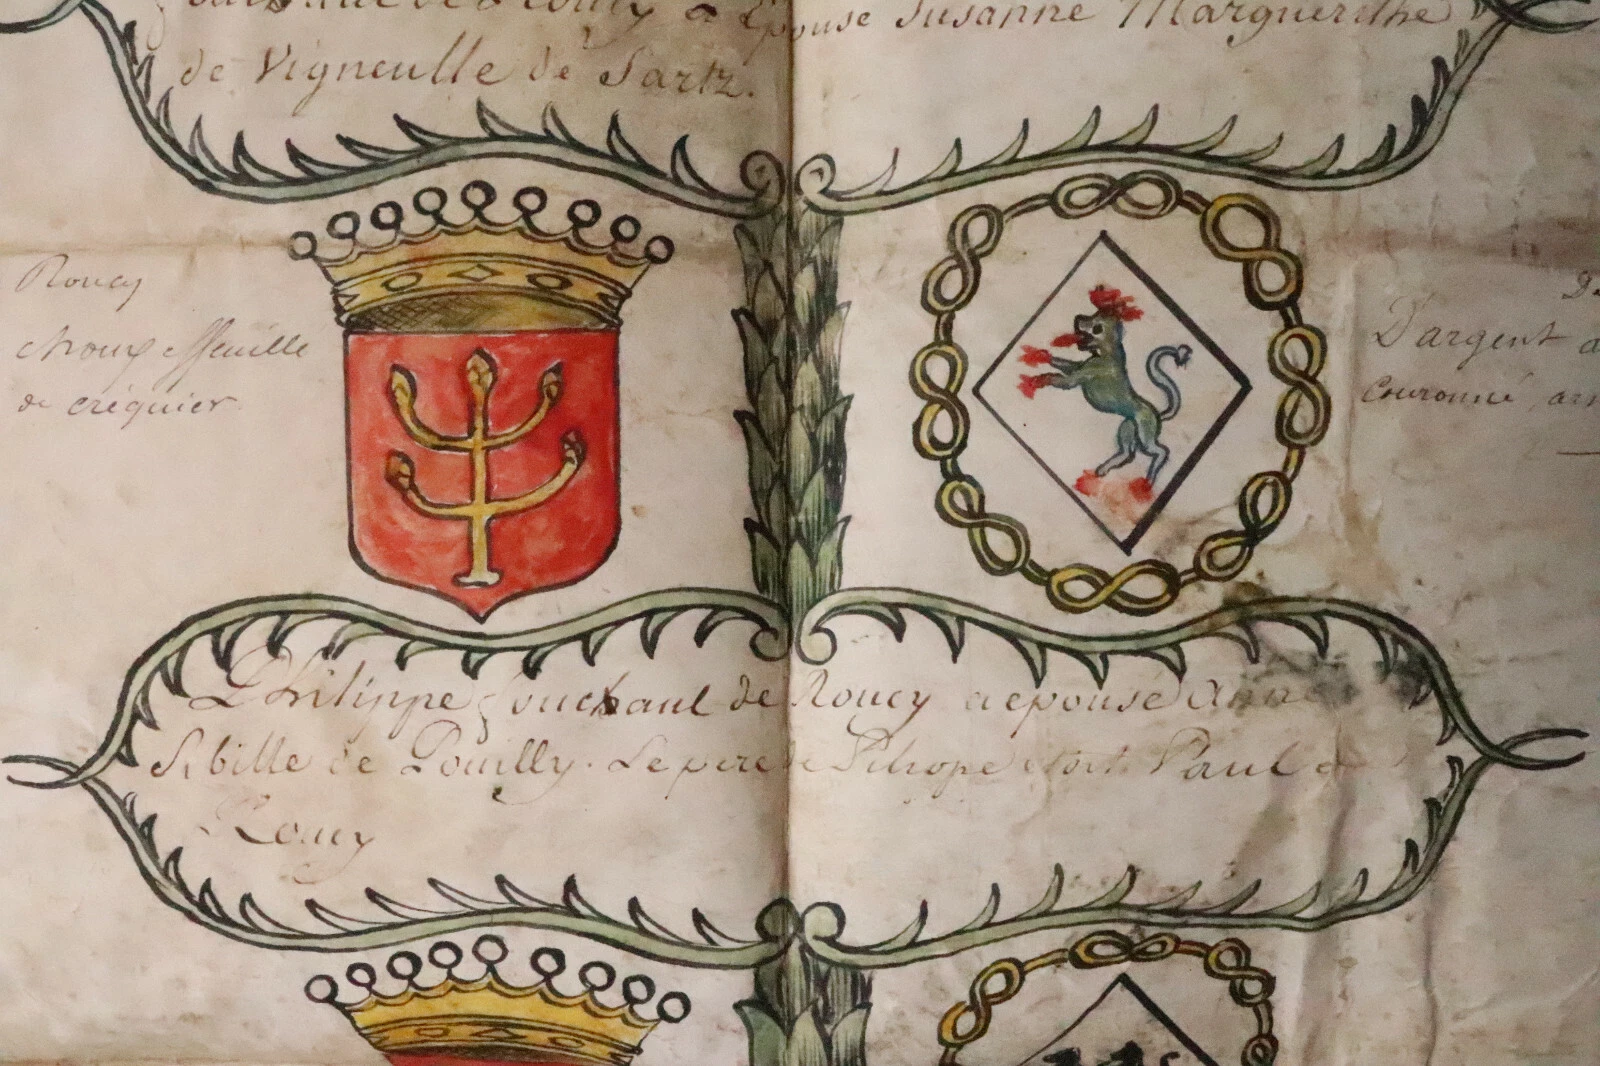 de Roucy a Epouse Susanne Marguerithe
de Vigneulle de Sartz.
Roucy
choux effeuille
de créquier
D'argent
Couronné
Philippe Fouchaul de Roucy a epousé Anne
Sibille de Pouilly. Le pere de Philipe etoit Paul
Roucy